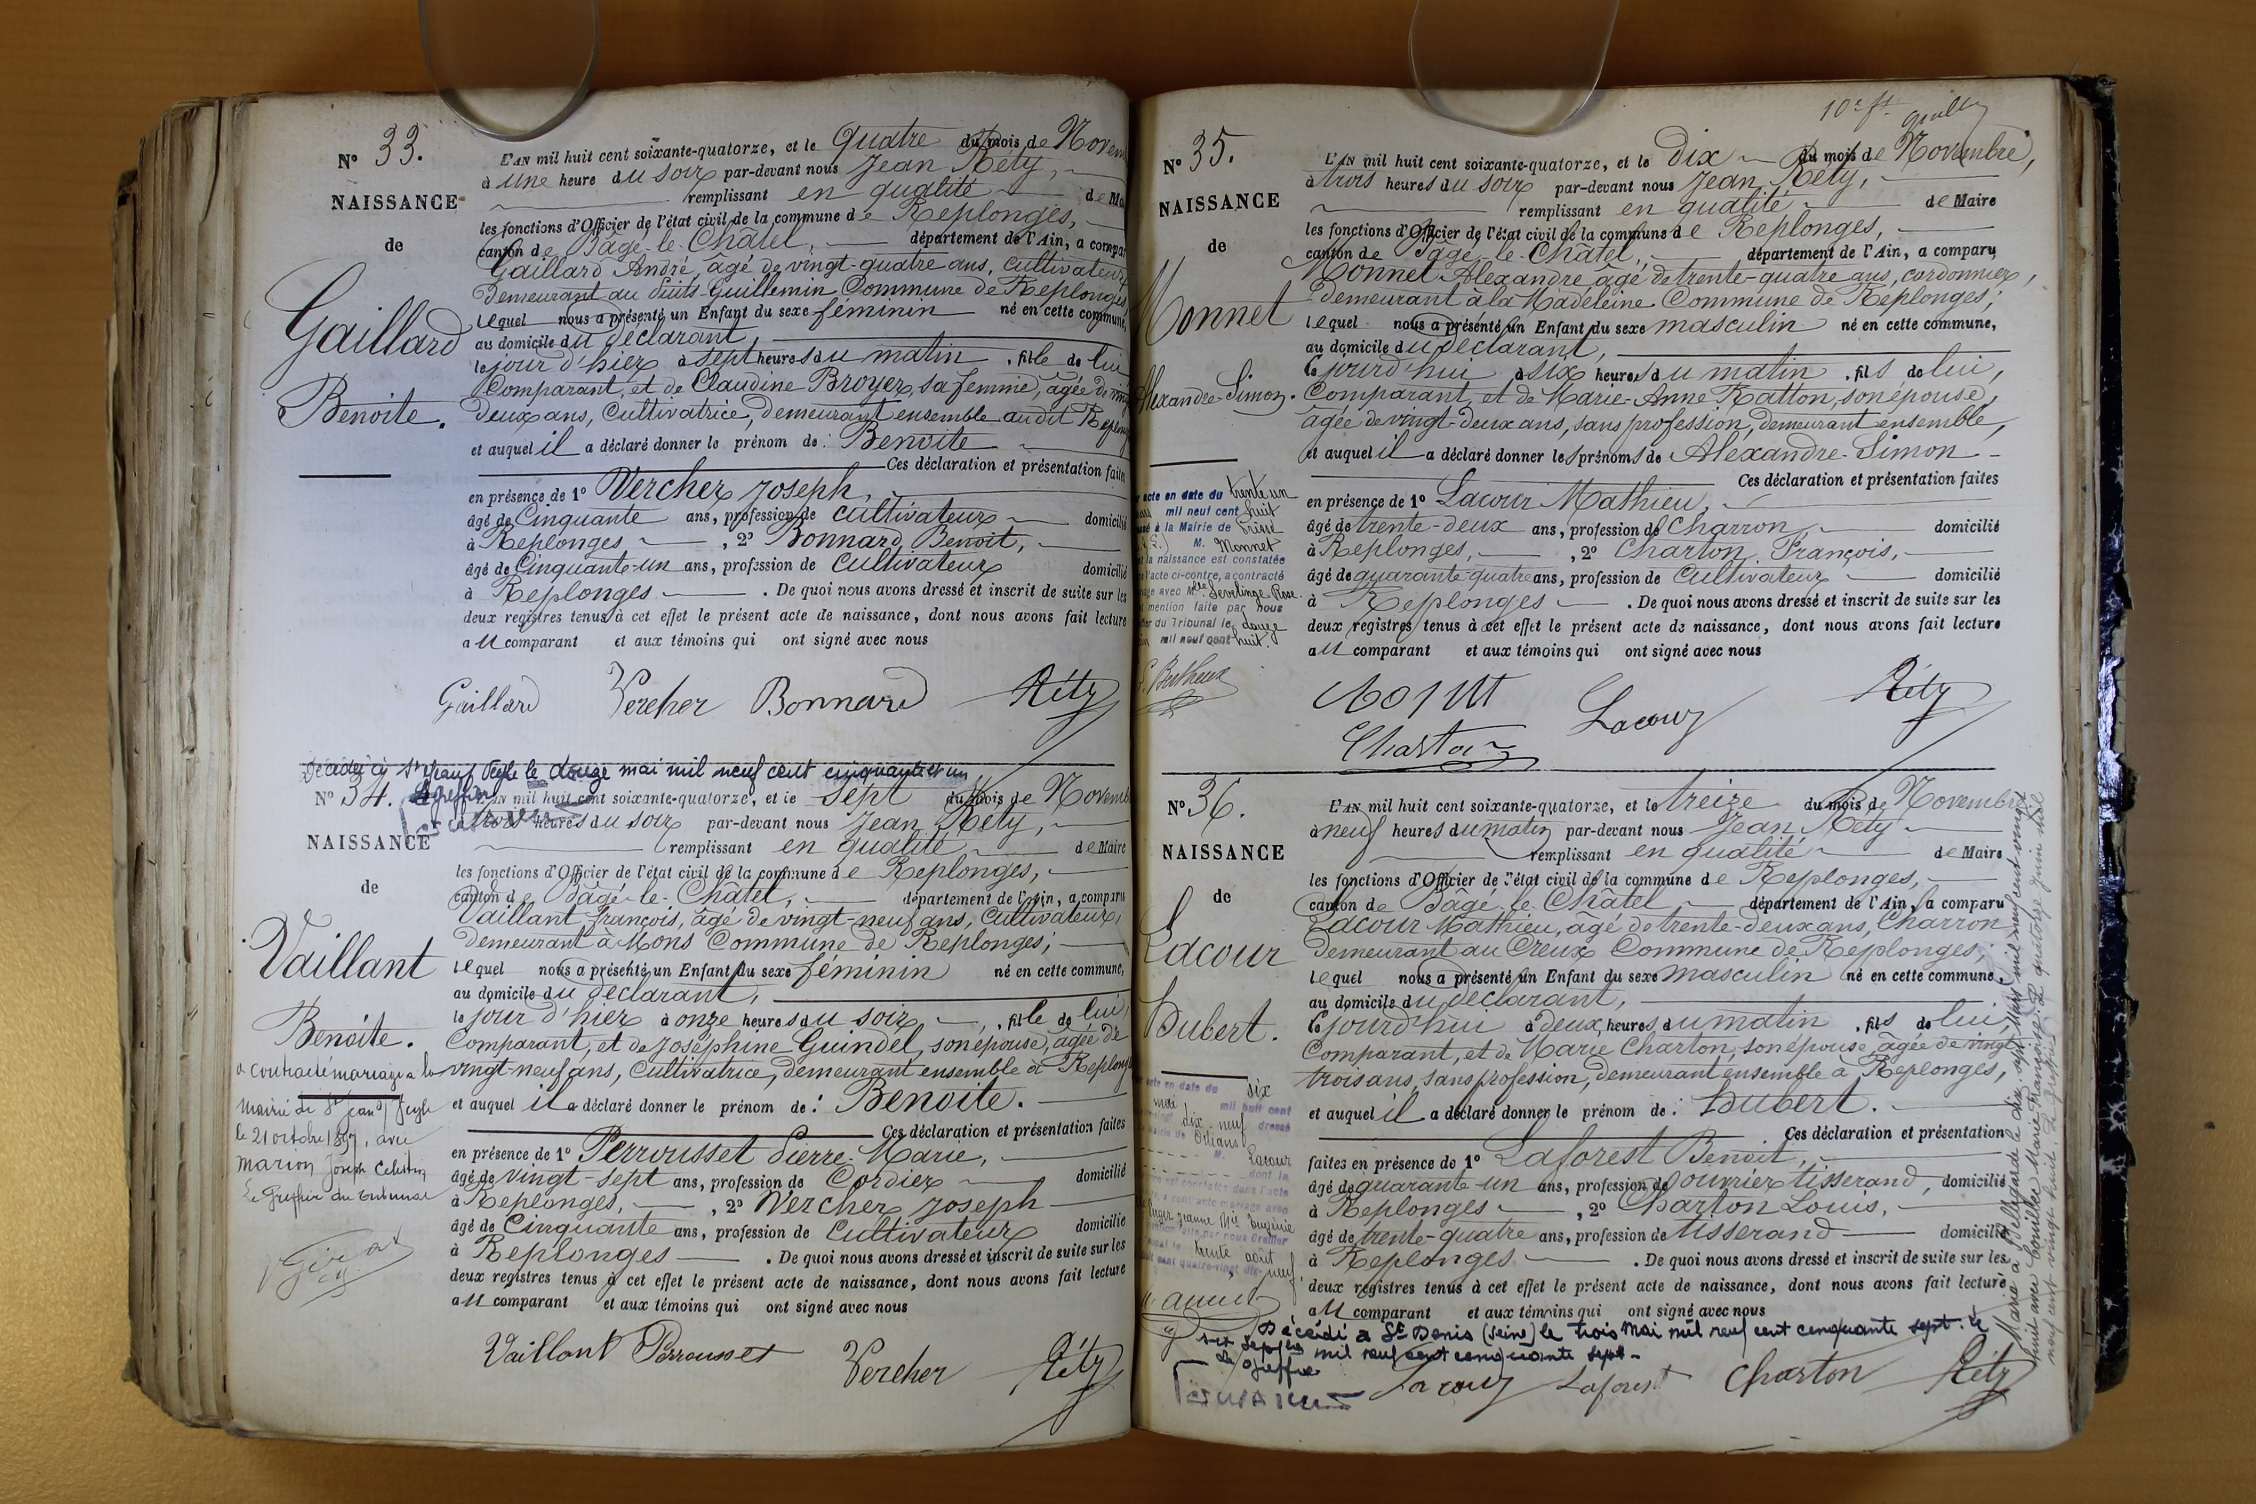 N° 33.
NAISSANCE
de
Gaillard
Benoite.
L'AN mil huit cent soixante-quatorze, et le quatre du mois de Novem
à une heure du soir par-devant nous Jean Réty,
remplissant en qualité de Ma
les fonctions d'Officier de l'état civil de la commune de Replonges,
canton de Bâgé-le-Châtel, département de l'Ain, a compar
Gaillard André, âgé de vingt-quatre ans, cultivateur
demeurant au Puits-Guillemin Commune de Replonges
lequel nous a présenté un Enfant du sexe féminin né en cette commune,
au domicile du déclarant,
le jour d'hier à sept heures du matin, fille de lui
Comparant, et de Claudine Broyer, sa femme, âgée de vingt
deux ans, Cultivatrice, demeurant ensemble audit Replong
et auquel il a déclaré donner le prénom de : Benoite
Ces déclaration et présentation faites
en présence de 1° Vercher Joseph,
âgé de Cinquante ans, profession de cultivateur domicilié
à Replonges, 2° Bonnard Benoit,
âgé de Cinquante-un ans, profession de Cultivateur domicilié
à Replonges. De quoi nous avons dressé et inscrit de suite sur les
deux registres tenus à cet effet le présent acte de naissance, dont nous avons fait lecture
au comparant et aux témoins qui ont signé avec nous
Gaillard Vercher Bonnard Réty
le douze mai mil neuf cent cinquante et un
Le greffier
N° 34.
NAISSANCE
de
Vaillant
Benoite.
a contracté mariage à la
Mairie de St Jean s/ Veyle
le 21 octobre 1897, avec
Marion Joseph Célestin
Le Greffier du tribunal
L'AN mil huit cent soixante-quatorze, et le sept du mois de Novemb
à trois heures du soir par-devant nous Jean Réty,
remplissant en qualité de Maire
les fonctions d'Officier de l'état civil de la commune de Replonges,
canton de Bâgé-le-Châtel, département de l'Ain, a comparu
Vaillant François, âgé de vingt-neuf ans, Cultivateur,
demeurant à Mons Commune de Replonges;
lequel nous a présenté un Enfant du sexe féminin né en cette commune,
au domicile du déclarant,
le jour d'hier à onze heures du soir, fille de lui,
Comparant, et de Joséphine Guindel, son épouse, âgée de
vingt-neuf ans, Cultivatrice, demeurant ensemble à Replong
et auquel il a déclaré donner le prénom de : Benoite.
Ces déclaration et présentation faites
en présence de 1° Perrousset Pierre-Marie,
âgé de vingt-sept ans, profession de Cordier domicilié
à Replonges, 2° Vercher Joseph
âgé de Cinquante ans, profession de Cultivateur domicilié
à Replonges. De quoi nous avons dressé et inscrit de suite sur les
deux registres tenus à cet effet le présent acte de naissance, dont nous avons fait lecture
au comparant et aux témoins qui ont signé avec nous
Vaillant Perrousset Vercher Réty
N° 35.
NAISSANCE
de
Monnet
Alexandre-Simon.
acte en date du trente un
mil neuf cent huit
à la Mairie de
M. Monnet
la naissance est constatée
l'acte ci-contre, a contracté
avec Mlle Sevelinge Rose
mention faite par nous
du Tribunal le douze
mil neuf cent huit.
L'AN mil huit cent soixante-quatorze, et le dix du mois de Novembre,
à trois heures du soir par-devant nous Jean Réty,
remplissant en qualité de Maire
les fonctions d'Officier de l'état civil de la commune de Replonges,
canton de Bâgé-le-Châtel, département de l'Ain, a comparu
Monnet Alexandre, âgé de trente-quatre ans, cordonnier,
demeurant à la Madeleine Commune de Replonges;
lequel nous a présenté un Enfant du sexe masculin né en cette commune,
au domicile du déclarant,
ce jourd'hui à six heures du matin, fils de lui,
Comparant, et de Marie-Anne Ratton, son épouse,
âgée de vingt-deux ans, sans profession, demeurant ensemble,
et auquel il a déclaré donner les prénoms de Alexandre-Simon
Ces déclaration et présentation faites
en présence de 1° Lacour Mathieu,
âgé de trente-deux ans, profession de Charron, domicilié
à Replonges, 2° Charton François,
âgé de quarante-quatre ans, profession de Cultivateur domicilié
à Replonges. De quoi nous avons dressé et inscrit de suite sur les
deux registres tenus à cet effet le présent acte de naissance, dont nous avons fait lecture
au comparant et aux témoins qui ont signé avec nous
Lacour Réty
Charton
N° 36.
NAISSANCE
de
Lacour
Hubert.
acte en date du dix
mai mil huit cent
dix-neuf dressé
Orléans
M. Lacour
dont la
Jeanne Mie Eugénie
trente août
quatre-vingt dix neuf
L'AN mil huit cent soixante-quatorze, et le treize du mois de Novembre
à neuf heures du matin par-devant nous Jean Réty
remplissant en qualité de Maire
les fonctions d'Officier de l'état civil de la commune de Replonges,
canton de Bâgé-le-Châtel département de l'Ain, a comparu
Lacour Mathieu, âgé de trente-deux ans, Charron
demeurant au Creux Commune de Replonges;
lequel nous a présenté un Enfant du sexe masculin né en cette commune.
au domicile du déclarant,
ce jourd'hui à deux heures du matin, fils de lui,
Comparant, et de Marie Charton, son épouse, âgée de vingt
trois ans, sans profession, demeurant ensemble à Replonges,
et auquel il a déclaré donner le prénom de : Hubert.
Ces déclaration et présentation
faites en présence de 1° Laforest Benoit,
âgé de quarante-un ans, profession de ouvrier tisserand, domicilié
à Replonges, 2° Charton Louis,
âgé de trente-quatre ans, profession de tisserand domicilié
à Replonges. De quoi nous avons dressé et inscrit de suite sur les
deux registres tenus à cet effet le présent acte de naissance, dont nous avons fait lecture
au comparant et aux témoins qui ont signé avec nous
Décédé à St Denis (Seine) le trois Mai mil neuf cent cinquante sept. le
mil neuf cent cinquante sept-
Le Greffier
Lacour Laforest Charton Réty
Marié à Bellegarde le dix sept Mars mil neuf cent vingt
huit avec Marie Françoise. Le quatorze juin mil
neuf cent vingt huit. Le greffier